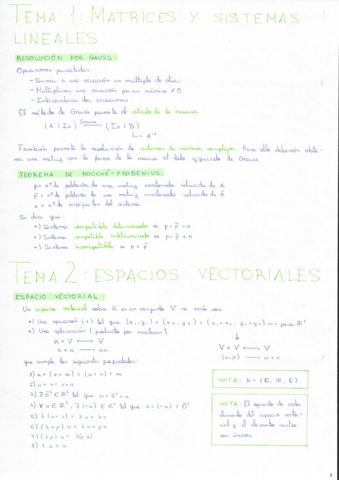 TEMA 1: MATRICES Y SISTEMAS
LINEALES
RESOLUCIÓN POR GAUSS
Operaciones permitidas:
- Sumar a una ecuación un múltiplo de otra.
- Multiplicar una ecuación por un número ≠ 0
- Intercambiar dos ecuaciones
El método de Gauss permite el cálculo de la inversa
(A | In) Gauss (In | B)
A⁻¹
También permite la resolución de sistemas de números complejos. Para ello debemos
una matriz con la forma de la inversa al lado izquierdo de Gauss
TEOREMA DE ROUCHÉ-FROBENIUS:
p = nº de peldaños de una matriz escalonada reducida de A
p̅ = nº de peldaños de una matriz escalonada reducida de A̅
n = nº de incógnitas del sistema
Se dice que:
•) Sistema compatible determinado si p = p̅ = n
•) Sistema compatible indeterminado si p = p̅ < n
•) Sistema incompatible si p ≠ p̅
TEMA 2: ESPACIOS VECTORIALES
ESPACIO VECTORIAL
Un espacio vectorial sobre K es un conjunto V no vacío con:
•) Una operación (+) tal que
para ℝ²
•) Una aplicación (producto por escalares)
K × V → V
V + V → V
(u,v) → u + v
que cumple las siguientes propiedades:
1) u + (v + w) = (u + v) + w
2) u + v = v + u
7) (λμ) u = λ(μu)
8) 1·u = u
NOTA: K = (ℚ, ℝ, ℂ)
NOTA: El opuesto de cada
elemento del espacio vecto-
rial y el elemento neutro
son únicos.
1